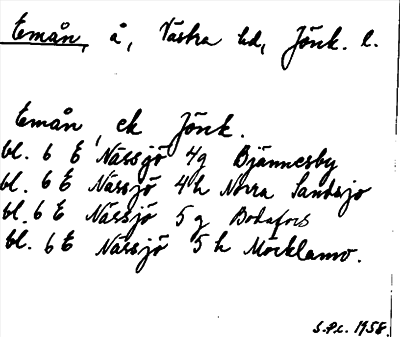 Emån, å, Västra hd, Jönk. l.
Emån, ek Jönk.
bl. 6 E Nässjö 4g Bjännesby
bl. 6 E Nässjö 4h Norra Sandsjö
bl. 6 E Nässjö 5g Bodafors
bl. 6 E Nässjö 5h Mörklamo.
S.P.L. 1958.